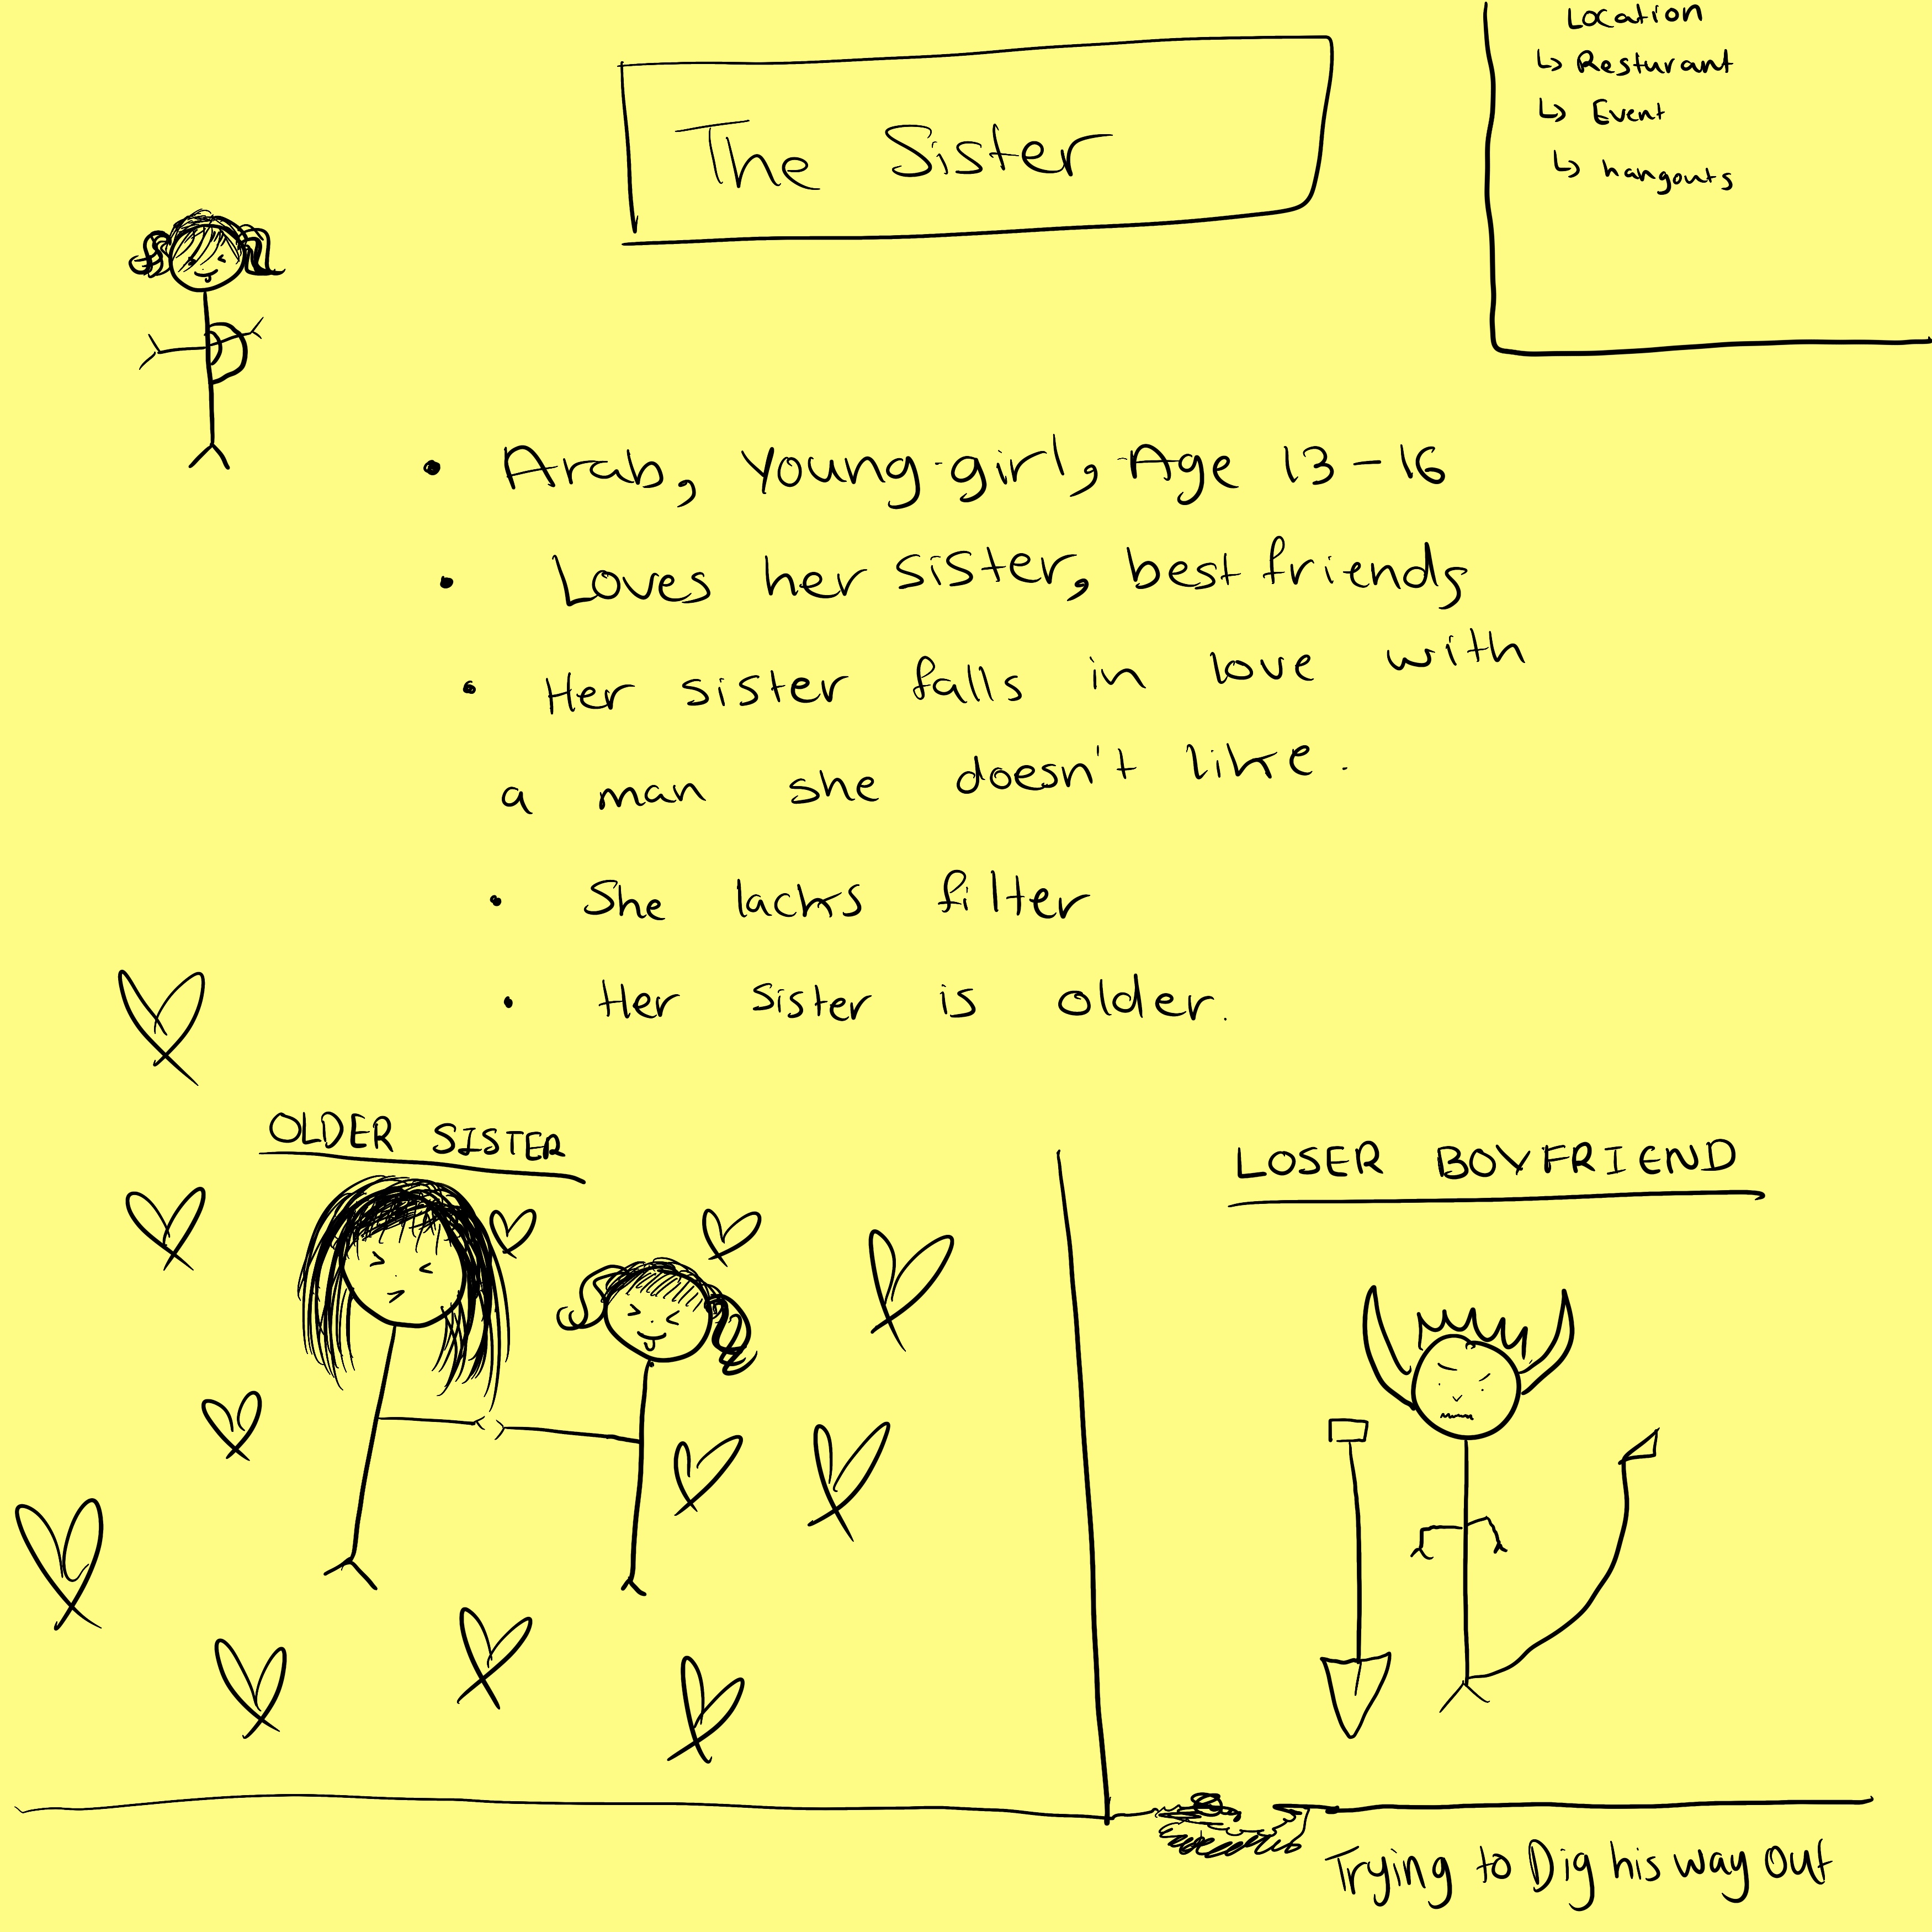 The Sister
Location
↳ Resturant
↳ Event
↳ hangouts
• Arab, Young-girl, Age 13-16
• Loves her sister, best friends
• Her sister falls in love with
a man she doesn't like.
• She lacks filter
• Her sister is older.
OLDER SISTER
LOSER BOYFRIEND
Trying to Dig his way Out